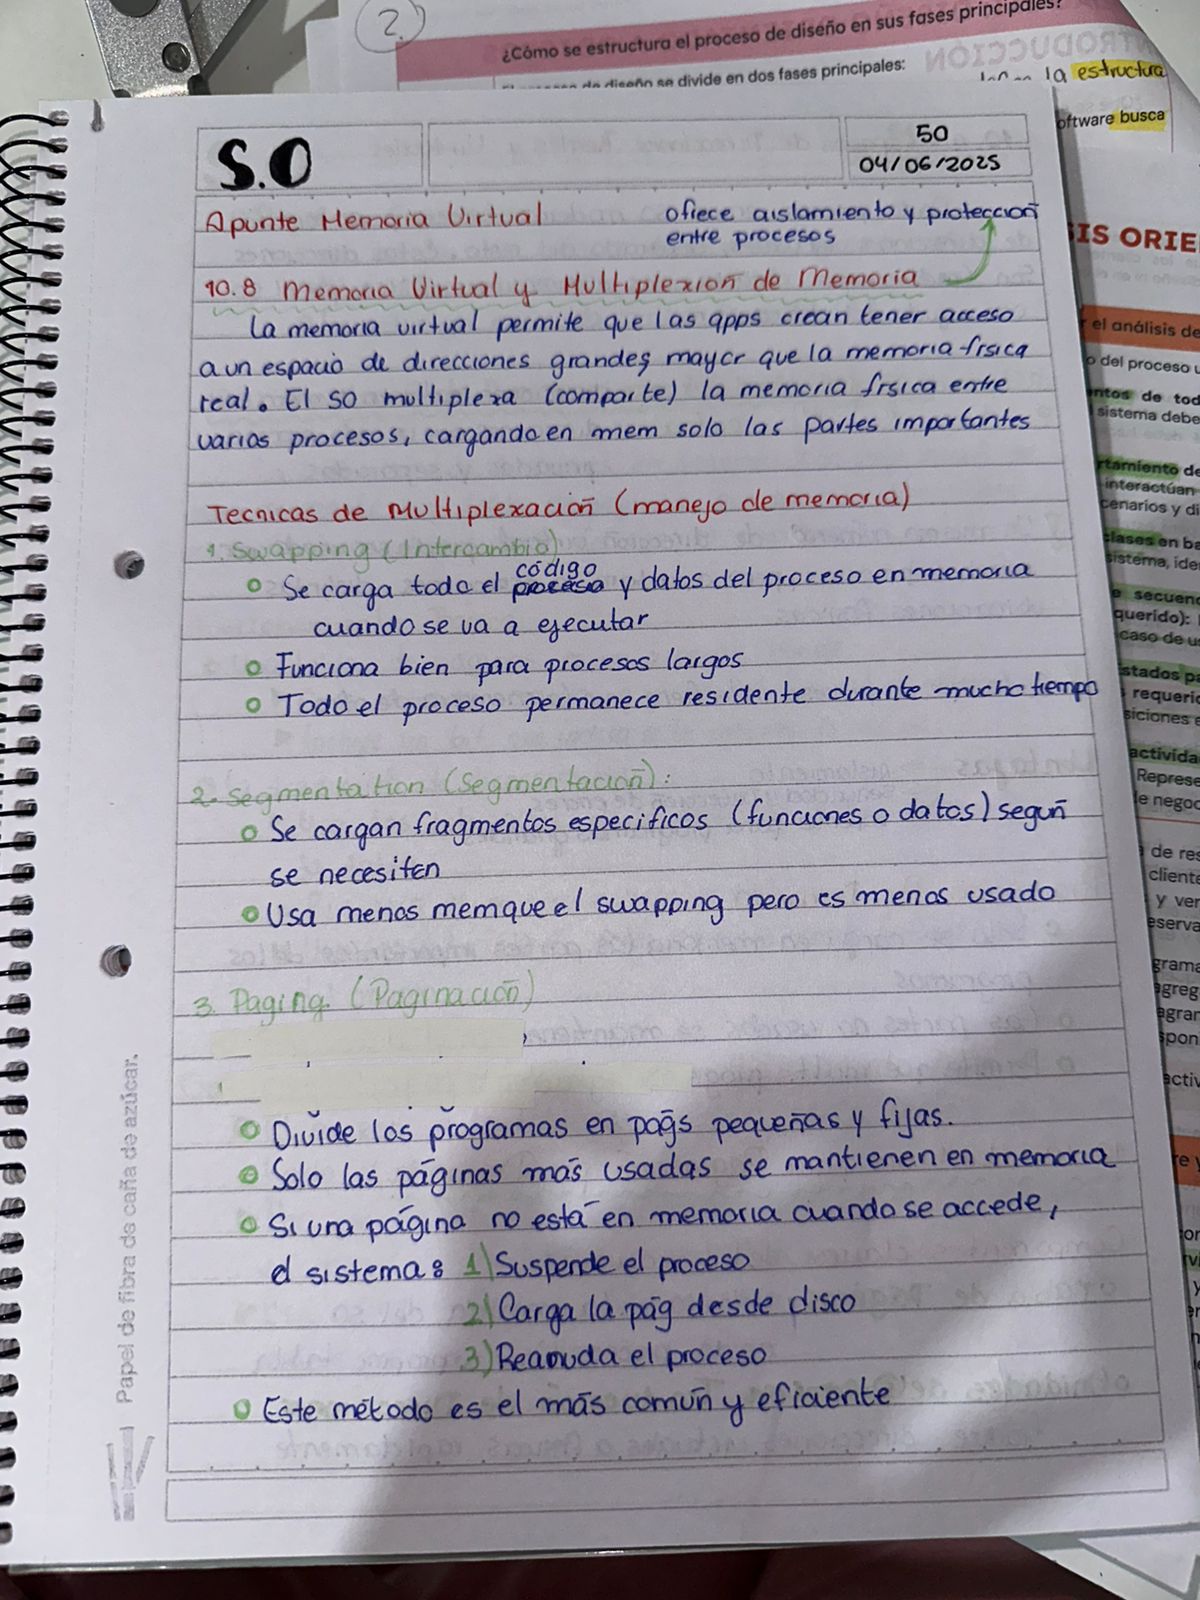 2.
¿Cómo se estructura el proceso de diseño en sus fases principales?
de diseño se divide en dos fases principales:
la estructura
oftware busca
S.O
50
04/06/2025
Apunte Memoria Virtual
ofrece aislamiento y protección
entre procesos
10.8 Memoria Virtual y Multiplexión de Memoria
La memoria virtual permite que las apps crean tener acceso
a un espacio de direcciones grandes, mayor que la memoria física
real. El SO multiplexa (comparte) la memoria física entre
varios procesos, cargando en mem solo las partes importantes
Tecnicas de Multiplexación (manejo de memoria)
1. Swapping (Intercambio)
Se carga todo el código proceso y datos del proceso en memoria
cuando se va a ejecutar
Funciona bien para procesos largos
Todo el proceso permanece residente durante mucho tiempo
2. Segmentation (Segmentación):
Se cargan fragmentos especificos (funciones o datos) según
se necesiten
Usa menos mem que el swapping pero es menos usado
3. Paging (Paginación)
Divide los programas en págs pequeñas y fijas.
Solo las páginas más usadas se mantienen en memoria
Si una página no está en memoria cuando se accede,
el sistema: 1) Suspende el proceso
2) Carga la pág desde disco
3) Reanuda el proceso
Este método es el más común y eficiente
Papel de fibra de caña de azúcar.
SIS ORIE
el análisis de
o del proceso u
ntos de tod
sistema debe
rtamiento de
interactúan
cenarios y di
clases en ba
sistema, ide
e secuenc
querido):
caso de us
stados pa
requeric
siciones e
actividad
Represe
de negoc
de res
cliente
y ver
eserva
grama
agreg
agran
spon
activ